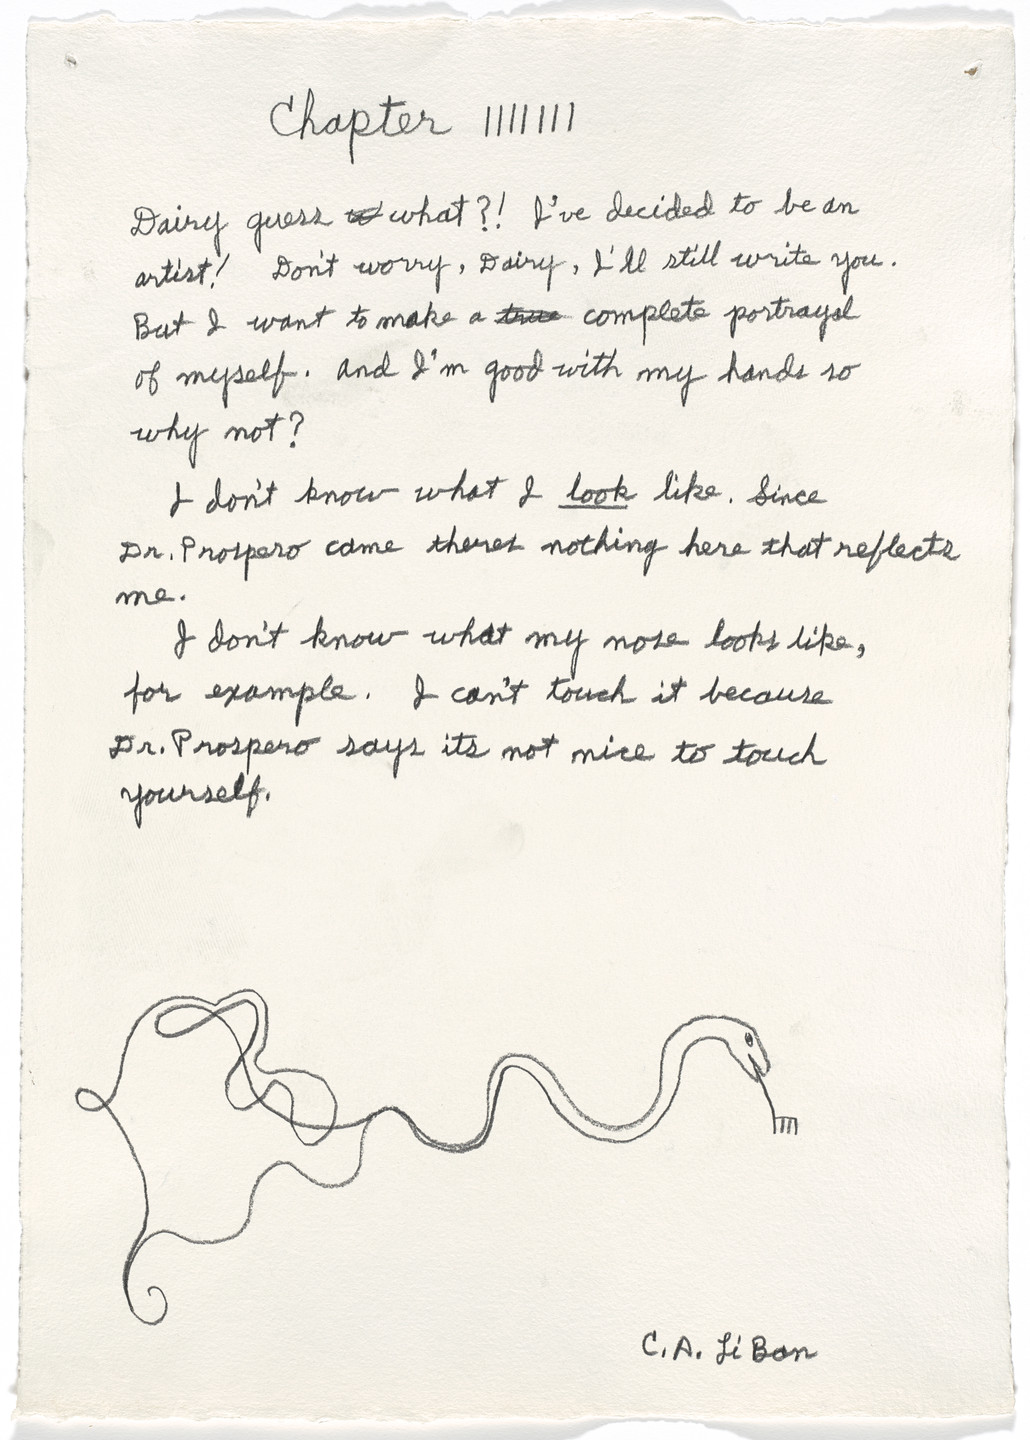 Chapter |||||||
Dairy guess what?! I've decided to be an
artist! Don't worry, Dairy, I'll still write you.
But I want to make a true complete portrayal
of myself. And I'm good with my hands so
why not?
I don't know what I look like. Since
Dr. Prospero came theres nothing here that reflects
me.
I don't know what my nose looks like,
for example. I can't touch it because
Dr. Prospero says its not nice to touch
yourself.
C.A. Li Ban